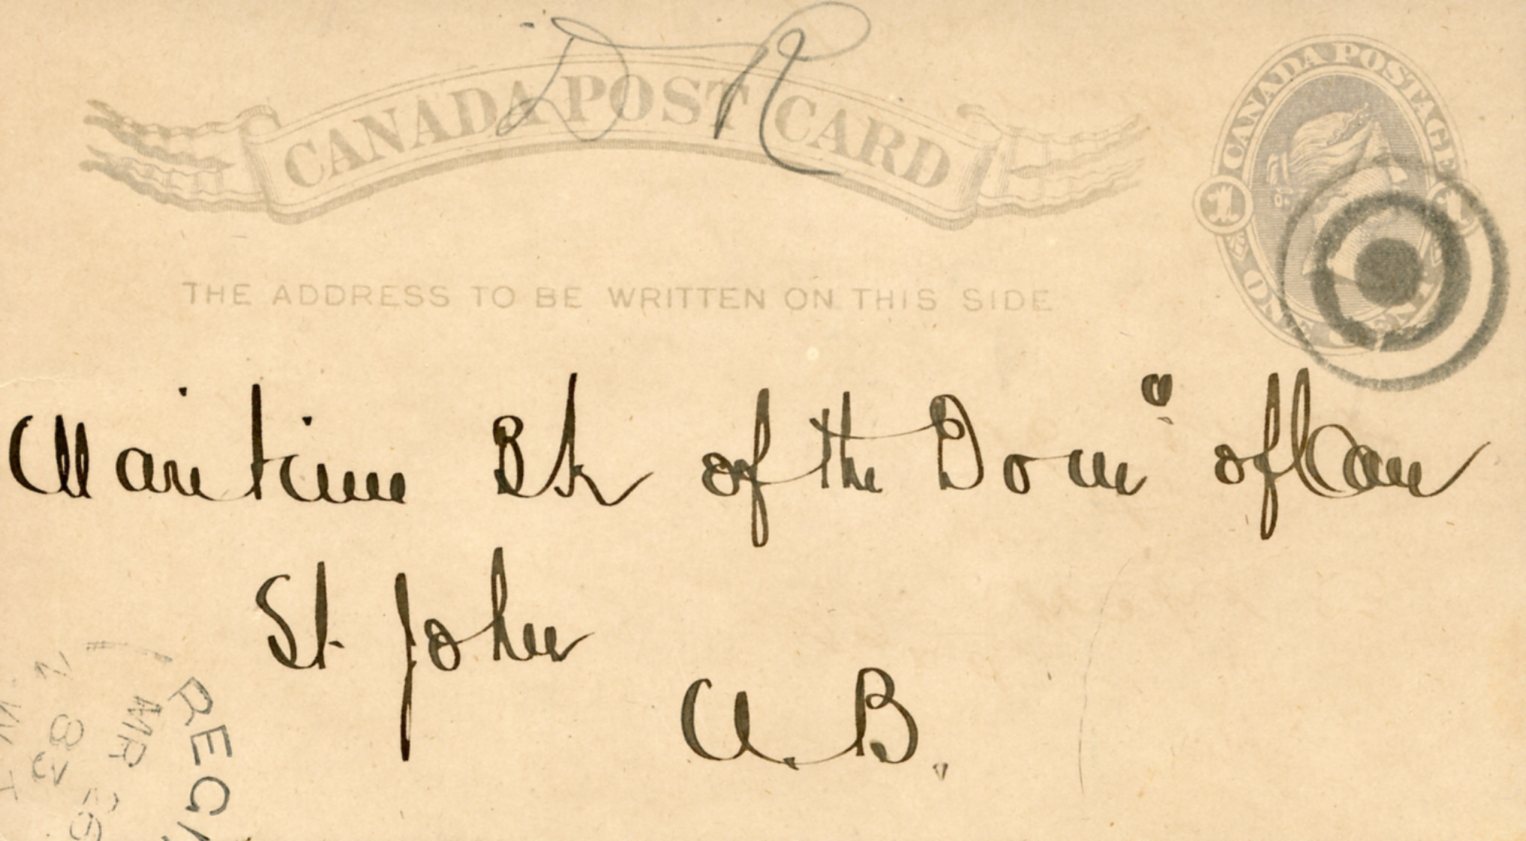 D R
CANADA POST CARD
CANADA POSTAGE
1 1
ONE CENT
THE ADDRESS TO BE WRITTEN ON THIS SIDE
Maritime Bk of the Domⁿ of Can
St. John
N.B.
REGI
MR 26
83
N.W.T